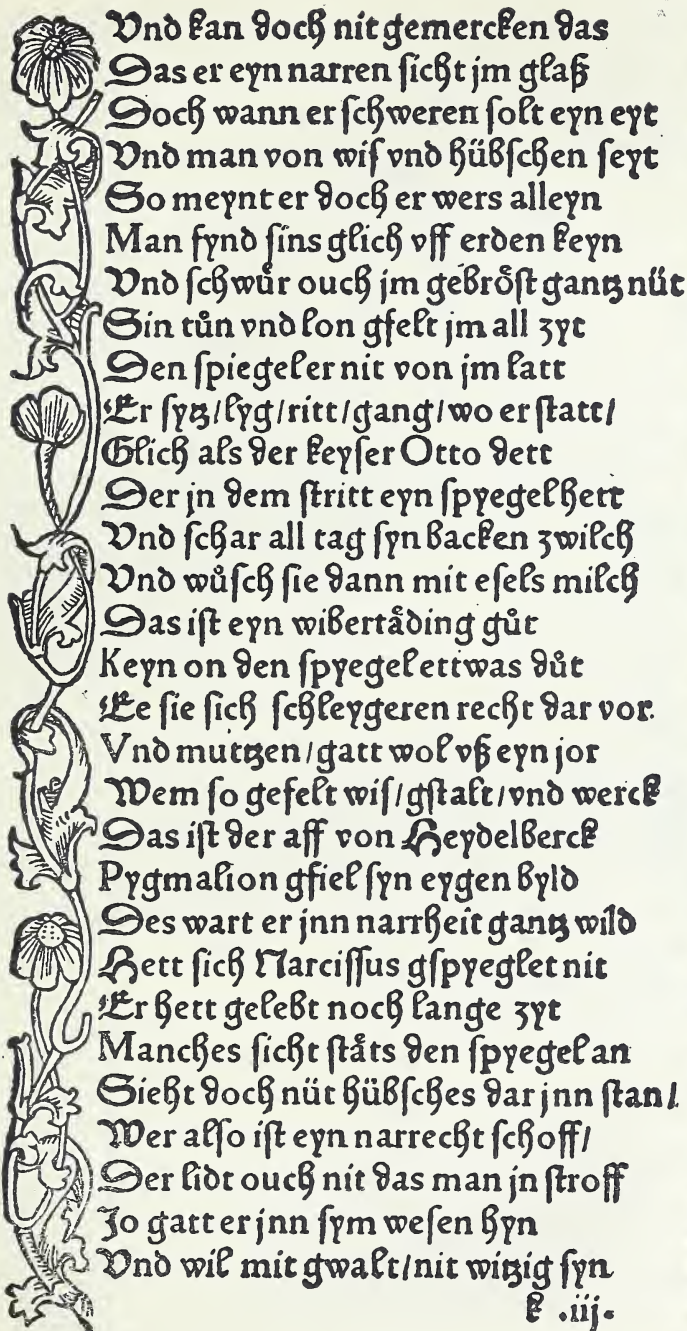 Vnd kan doch nit gemercken das
Das er eyn narren sicht jm glaß
Doch wann er schweren solt eyn eyt
Vnd man von wis vnd hübschen seyt
So meynt er doch er wers alleyn
Man fynd sins glich vff erden keyn
Vnd schwůr ouch jm gebrôst gantz nüt
Sin tůn vnd lon gfelt jm all zyt
Den spiegel er nit von jm latt
Er sytz/lyg/ritt/gang/wo er statt/
Glich als der keyser Otto dett
Der jn dem stritt eyn spyegel hett
Vnd schar all tag syn backen zwilch
Vnd wůsch sie dann mit esels milch
Das ist eyn wibertåding gůt
Keyn on den spyegel ettwas důt
Ee sie sich schleygeren recht dar vor.
Vnd mutzen/gatt wol vß eyn jor
Wem so gefelt wis/gstalt/vnd werck
Das ist der aff von Heydelberck
Pygmalion gfiel syn eygen byld
Des wart er jnn narrheit gantz wild
Hett sich Narcissus gspyeglet nit
Er hett gelebt noch lange zyt
Manches sicht ståts den spyegel an
Sieht doch nüt hübsches dar jnn stan/
Wer also ist eyn narrecht schoff/
Der lidt ouch nit das man jn stroff
Jo gatt er jnn sym wesen hyn
Vnd wil mit gwalt/nit witzig syn
k .iij.